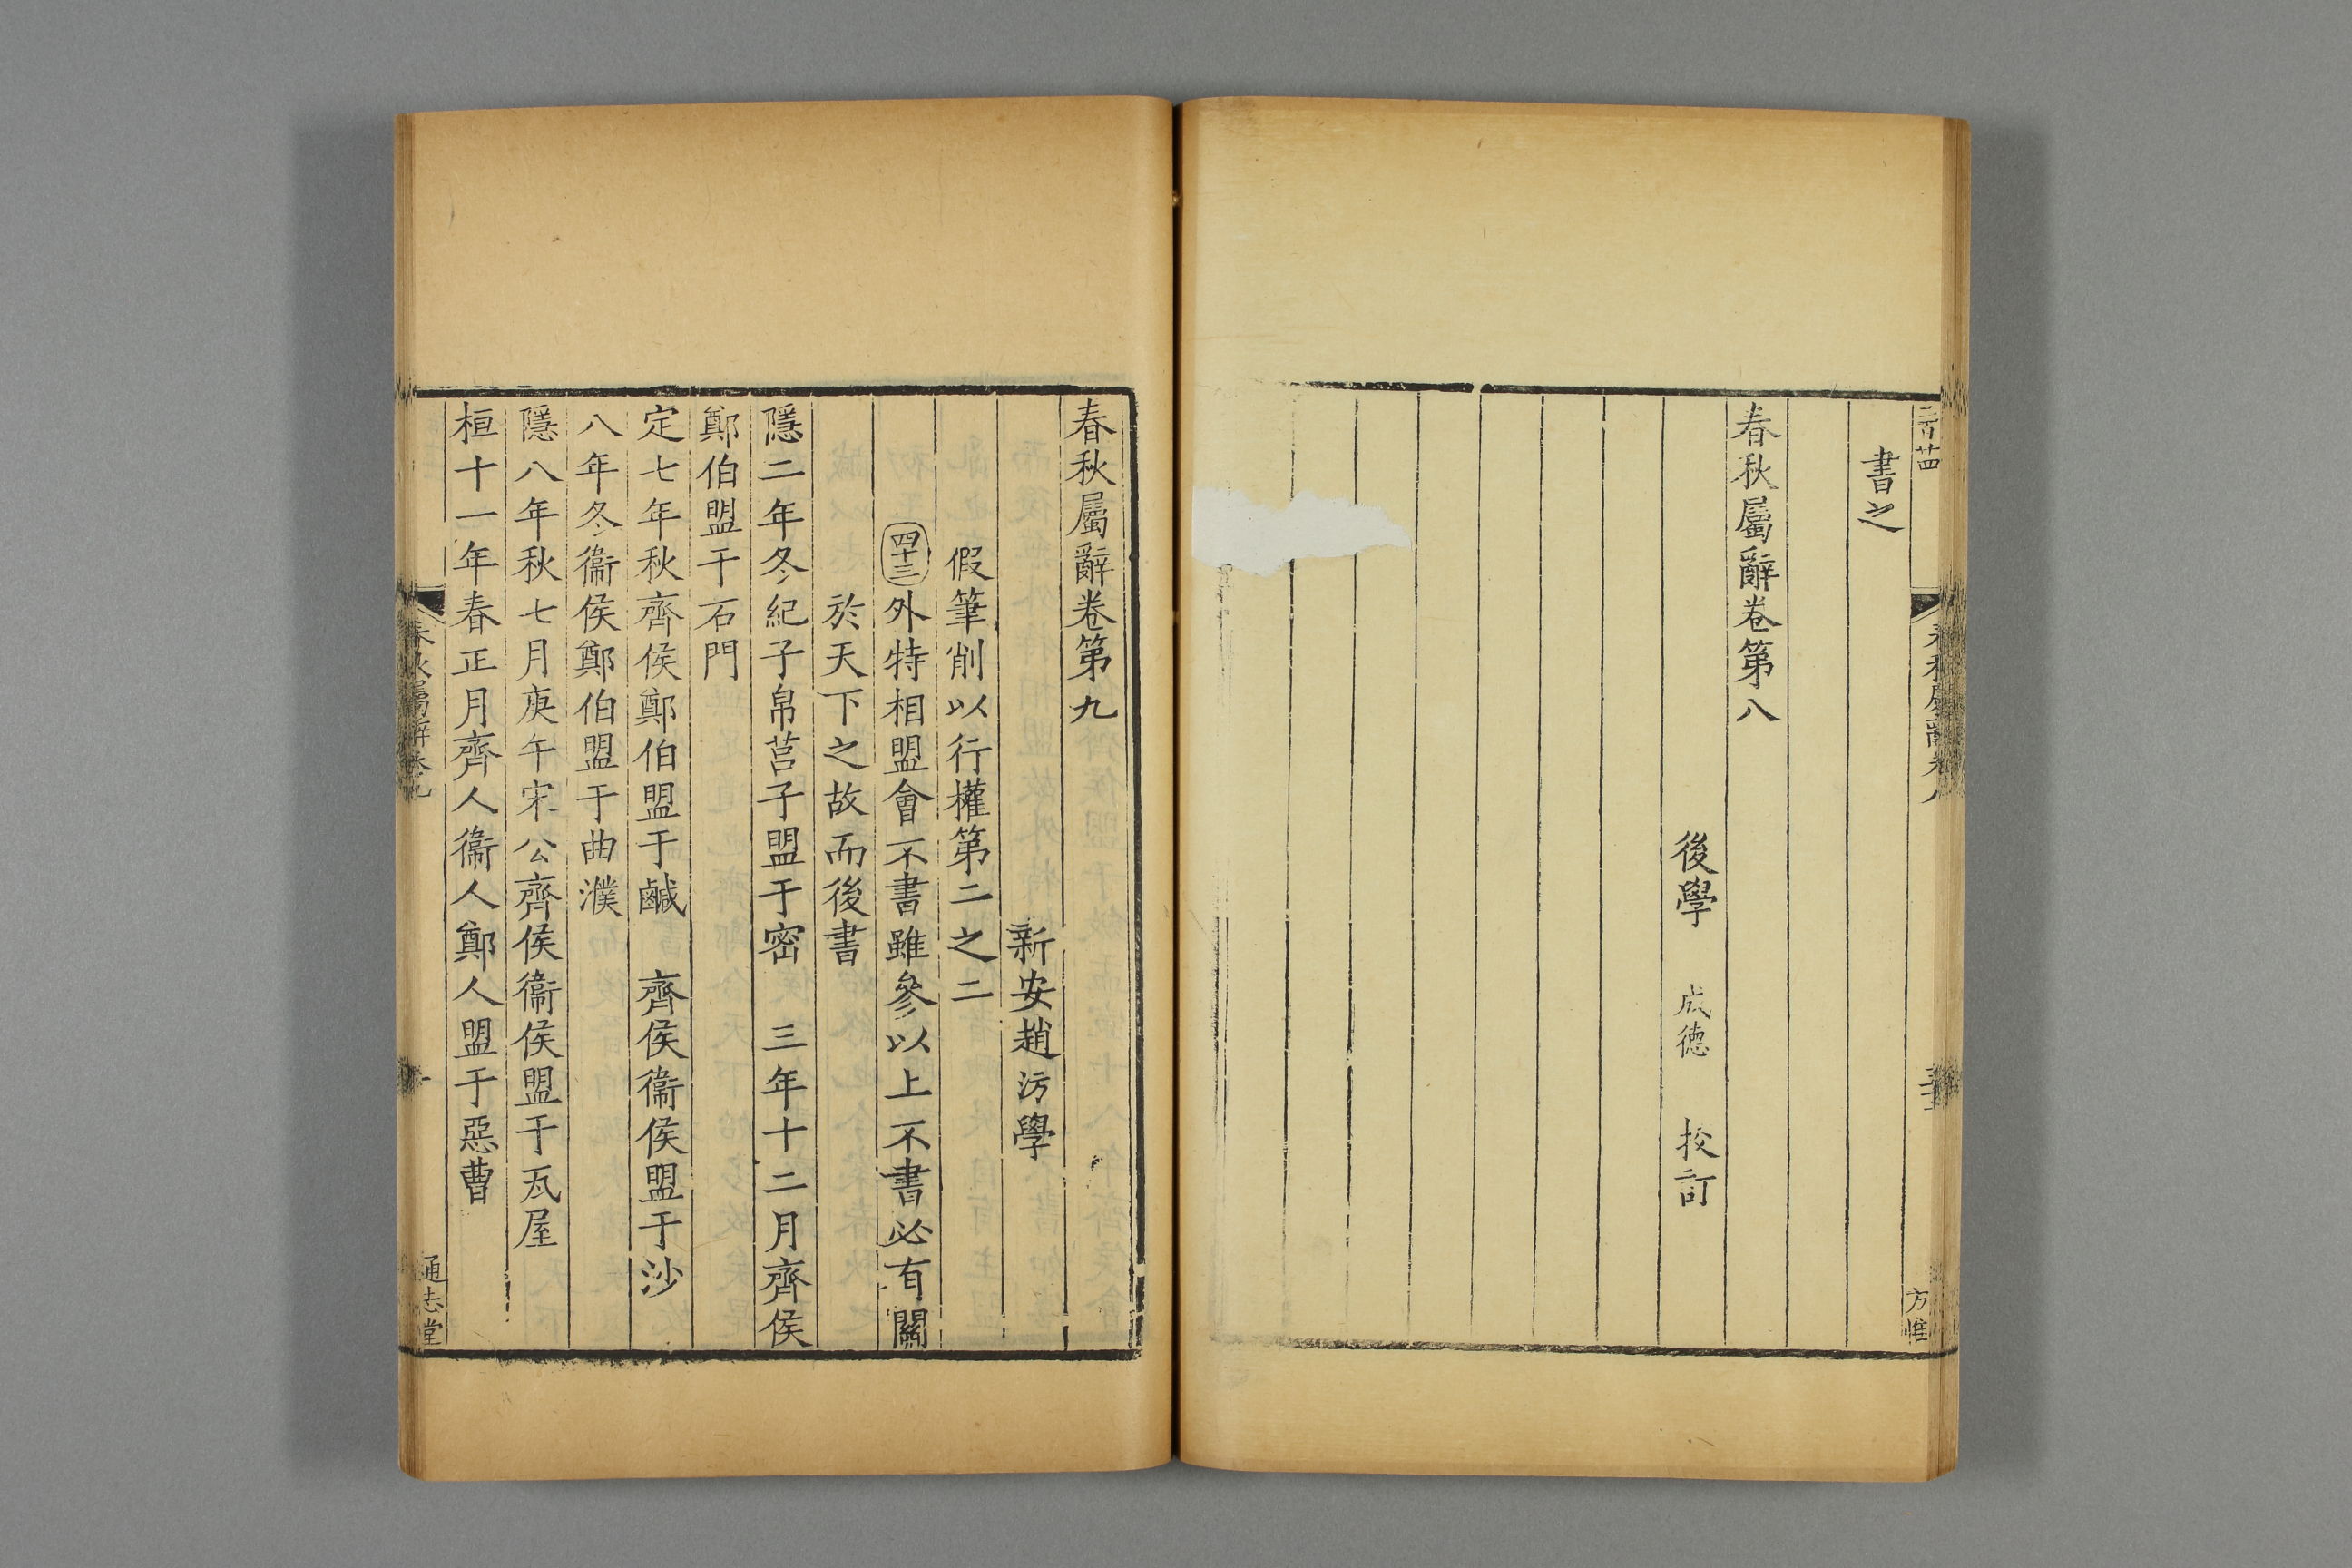 書之
春秋屬辭卷第八
後學 成德 校訂
春秋屬辭卷八
方惟
春秋屬辭卷第九
新安趙汸學
假筆削以行權第二之二
四十三外特相盟會不書雖參以上不書必有關
於天下之故而後書
隱二年冬紀子帛莒子盟于密 三年十二月齊侯
鄭伯盟于石門
定七年秋齊侯鄭伯盟于鹹 齊侯衞侯盟于沙
八年冬衞侯鄭伯盟于曲濮
隱八年秋七月庚午宋公齊侯衞侯盟于瓦屋
桓十一年春正月齊人衞人鄭人盟于惡曹
春秋屬辭卷九
一
通志堂